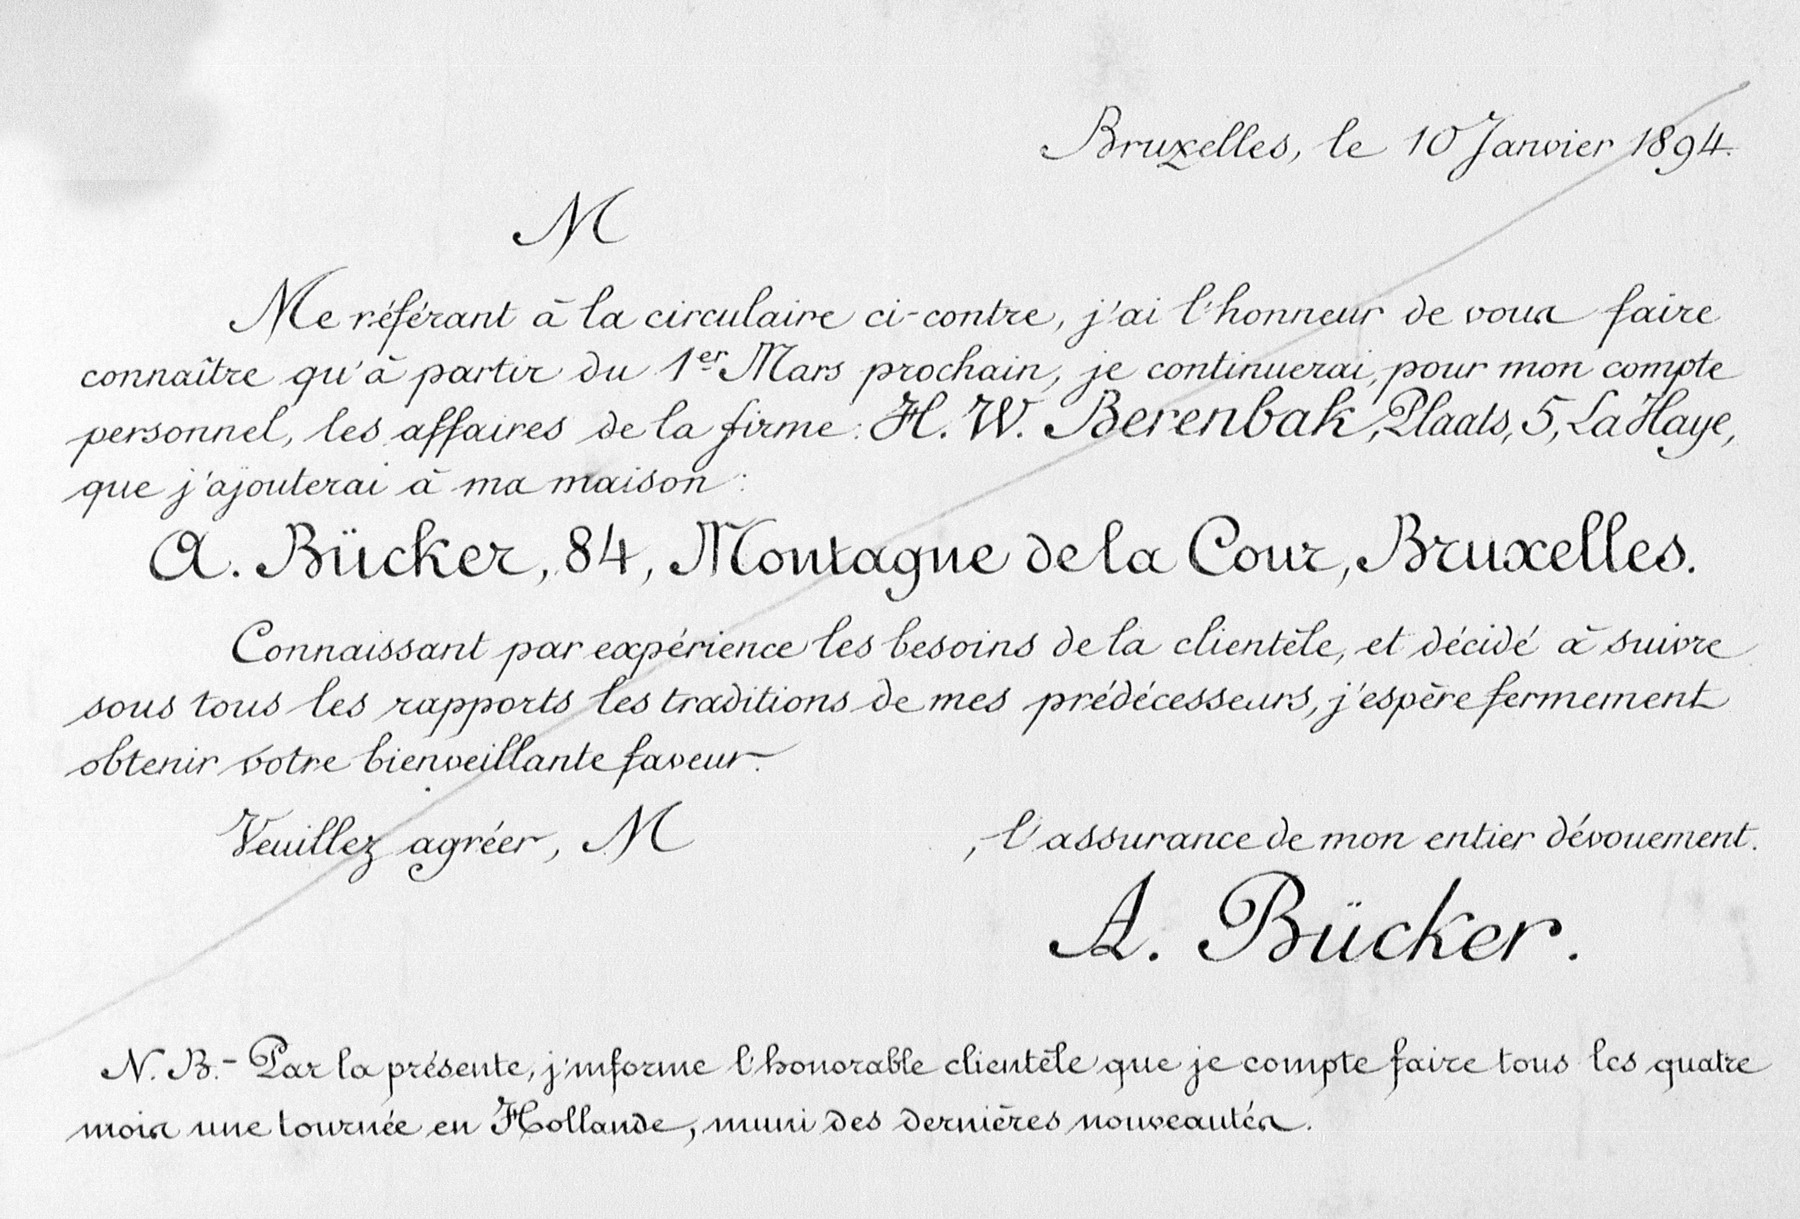 Bruxelles, le 10 Janvier 1894.
M
Me référant à la circulaire ci-contre, j'ai l'honneur de vous faire
connaître qu'à partir du 1er Mars prochain, je continuerai, pour mon compte
personnel, les affaires de la firme: H. W. Berenbak, Plaats, 5, La Haye,
que j'ajouterai à ma maison:
A. Bücker, 84, Montagne de la Cour, Bruxelles.
Connaissant par expérience les besoins de la clientèle, et décidé à suivre
sous tous les rapports les traditions de mes prédécesseurs, j'espère fermement
obtenir votre bienveillante faveur.
Veuillez agréer, M , l'assurance de mon entier dévouement.
A. Bücker.
N. B.- Par la présente, j'informe l'honorable clientèle que je compte faire tous les quatre
mois une tournée en Hollande, muni des dernières nouveautés.